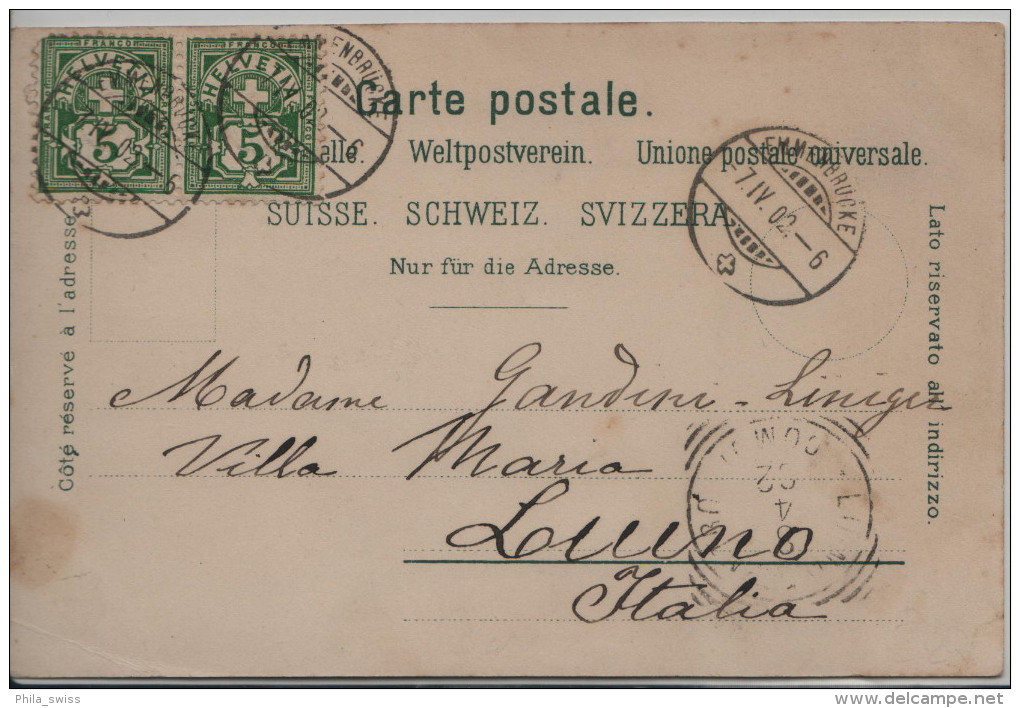 FRANCO FRANCO
HELVETIA HELVETIA
5 5
EMMENBRÜCKE
Carte postale.
Weltpostverein. Unione postale universale.
SUISSE. SCHWEIZ. SVIZZERA.
Nur für die Adresse.
EMMENBRÜCKE
-7.IV.02.-6
Côté réservé à l'adresse.
Lato riservato all' indirizzo.
Madame Gandini-Liniger
Villa Maria
Luino
Italia
Phila_swiss
delcampe.net